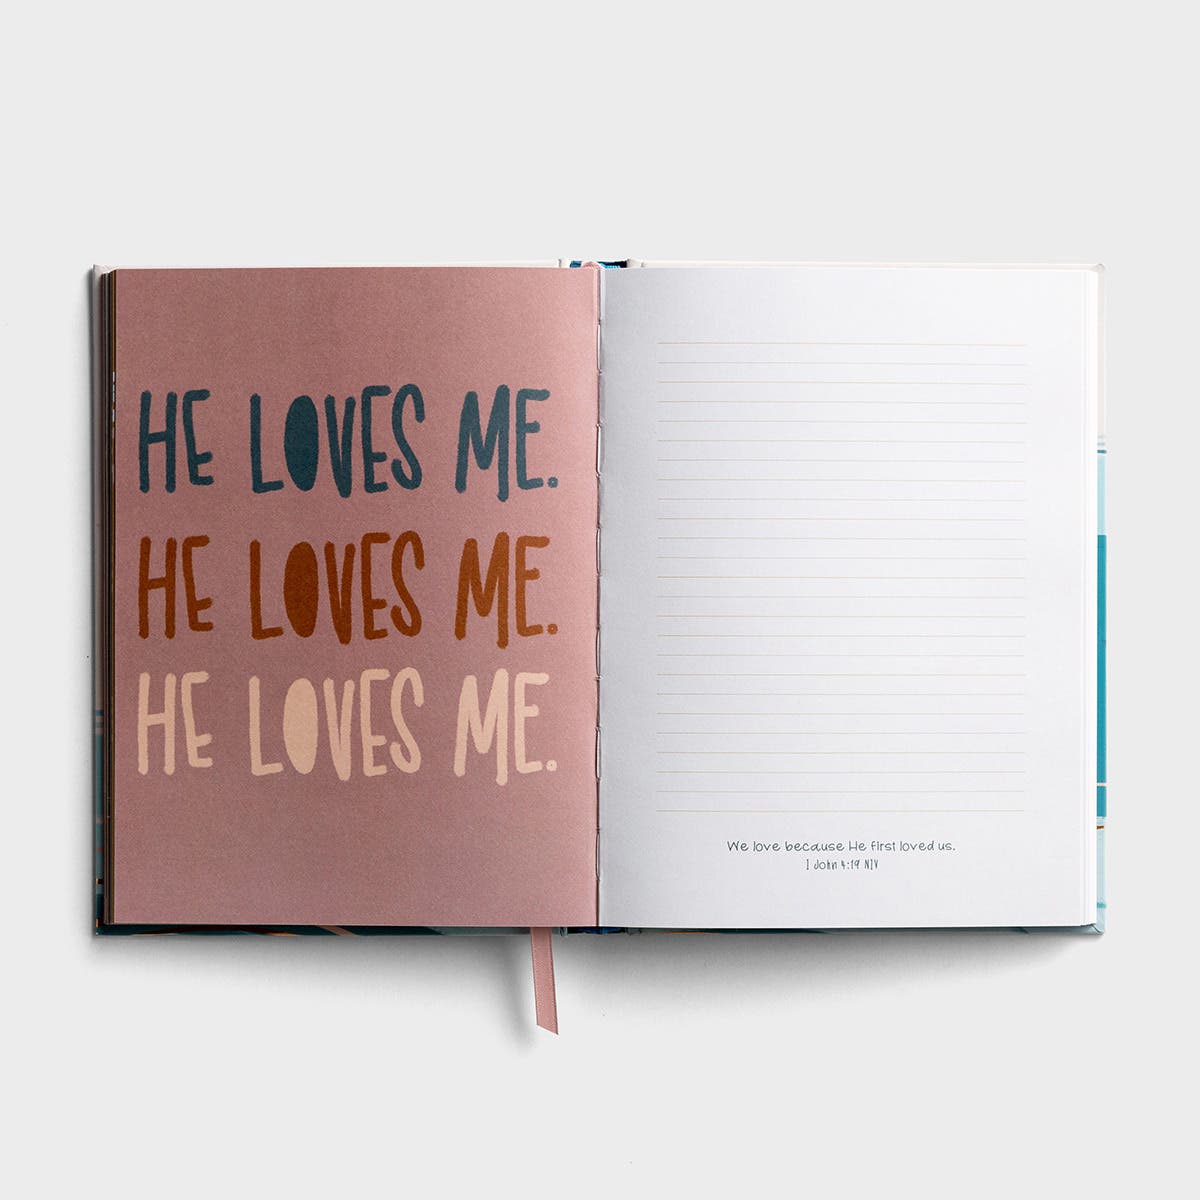 HE LOVES ME.
HE LOVES ME.
HE LOVES ME.
We love because He first loved us.
1 John 4:19 NIV